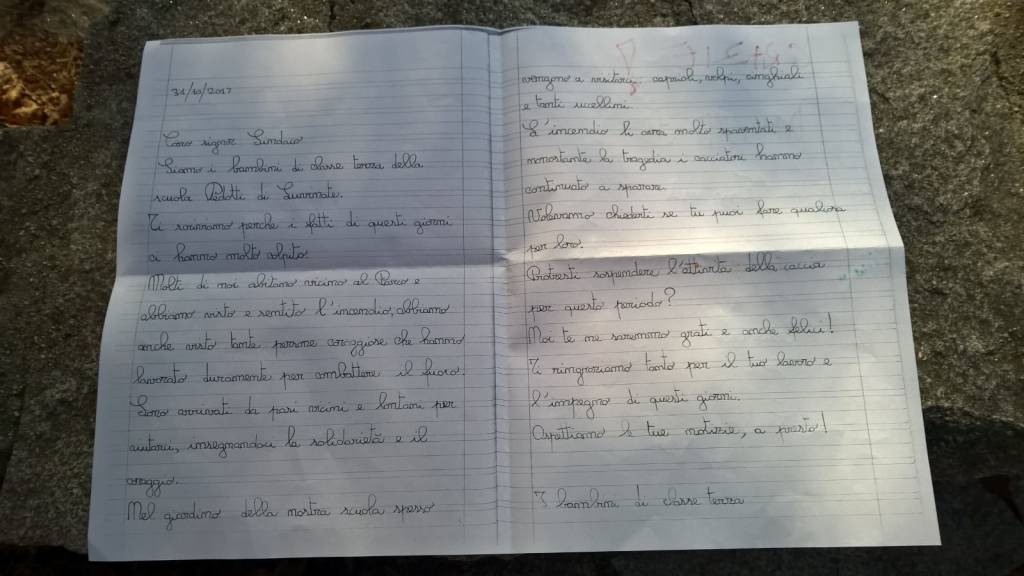 31/10/2017
Caro signor Sindaco
Siamo i bambini di classe terza della
scuola Pedotti di Luvinate.
Ti scriviamo perche i fatti di questi giorni
ci hanno molto colpito.
Molti di noi abitano vicino al Parco e
abbiamo visto e sentito l'incendio, abbiamo
anche visto tante persone coraggiose che hanno
lavorato duramente per combattere il fuoco.
Sono arrivati da paesi vicini e lontani per
aiutarci, insegnandoci la solidarietà e il
coraggio.
Nel giardino della nostra scuola spesso
vengono a visitarci caprioli, volpi, cinghiali
e tanti uccellini.
L'incendio li avrà molto spaventati e
nonostante la tragedia i cacciatori hanno
continuato a sparare.
Volevamo chiederti se tu puoi fare qualcosa
per loro.
Potresti sospendere l'attività della caccia
per questo periodo?
Noi te ne saremmo grati e anche felici!
Ti ringraziamo tanto per il tuo lavoro e
l'impegno di questi giorni.
Aspettiamo le tue notizie, a presto!
I bambini di classe terza